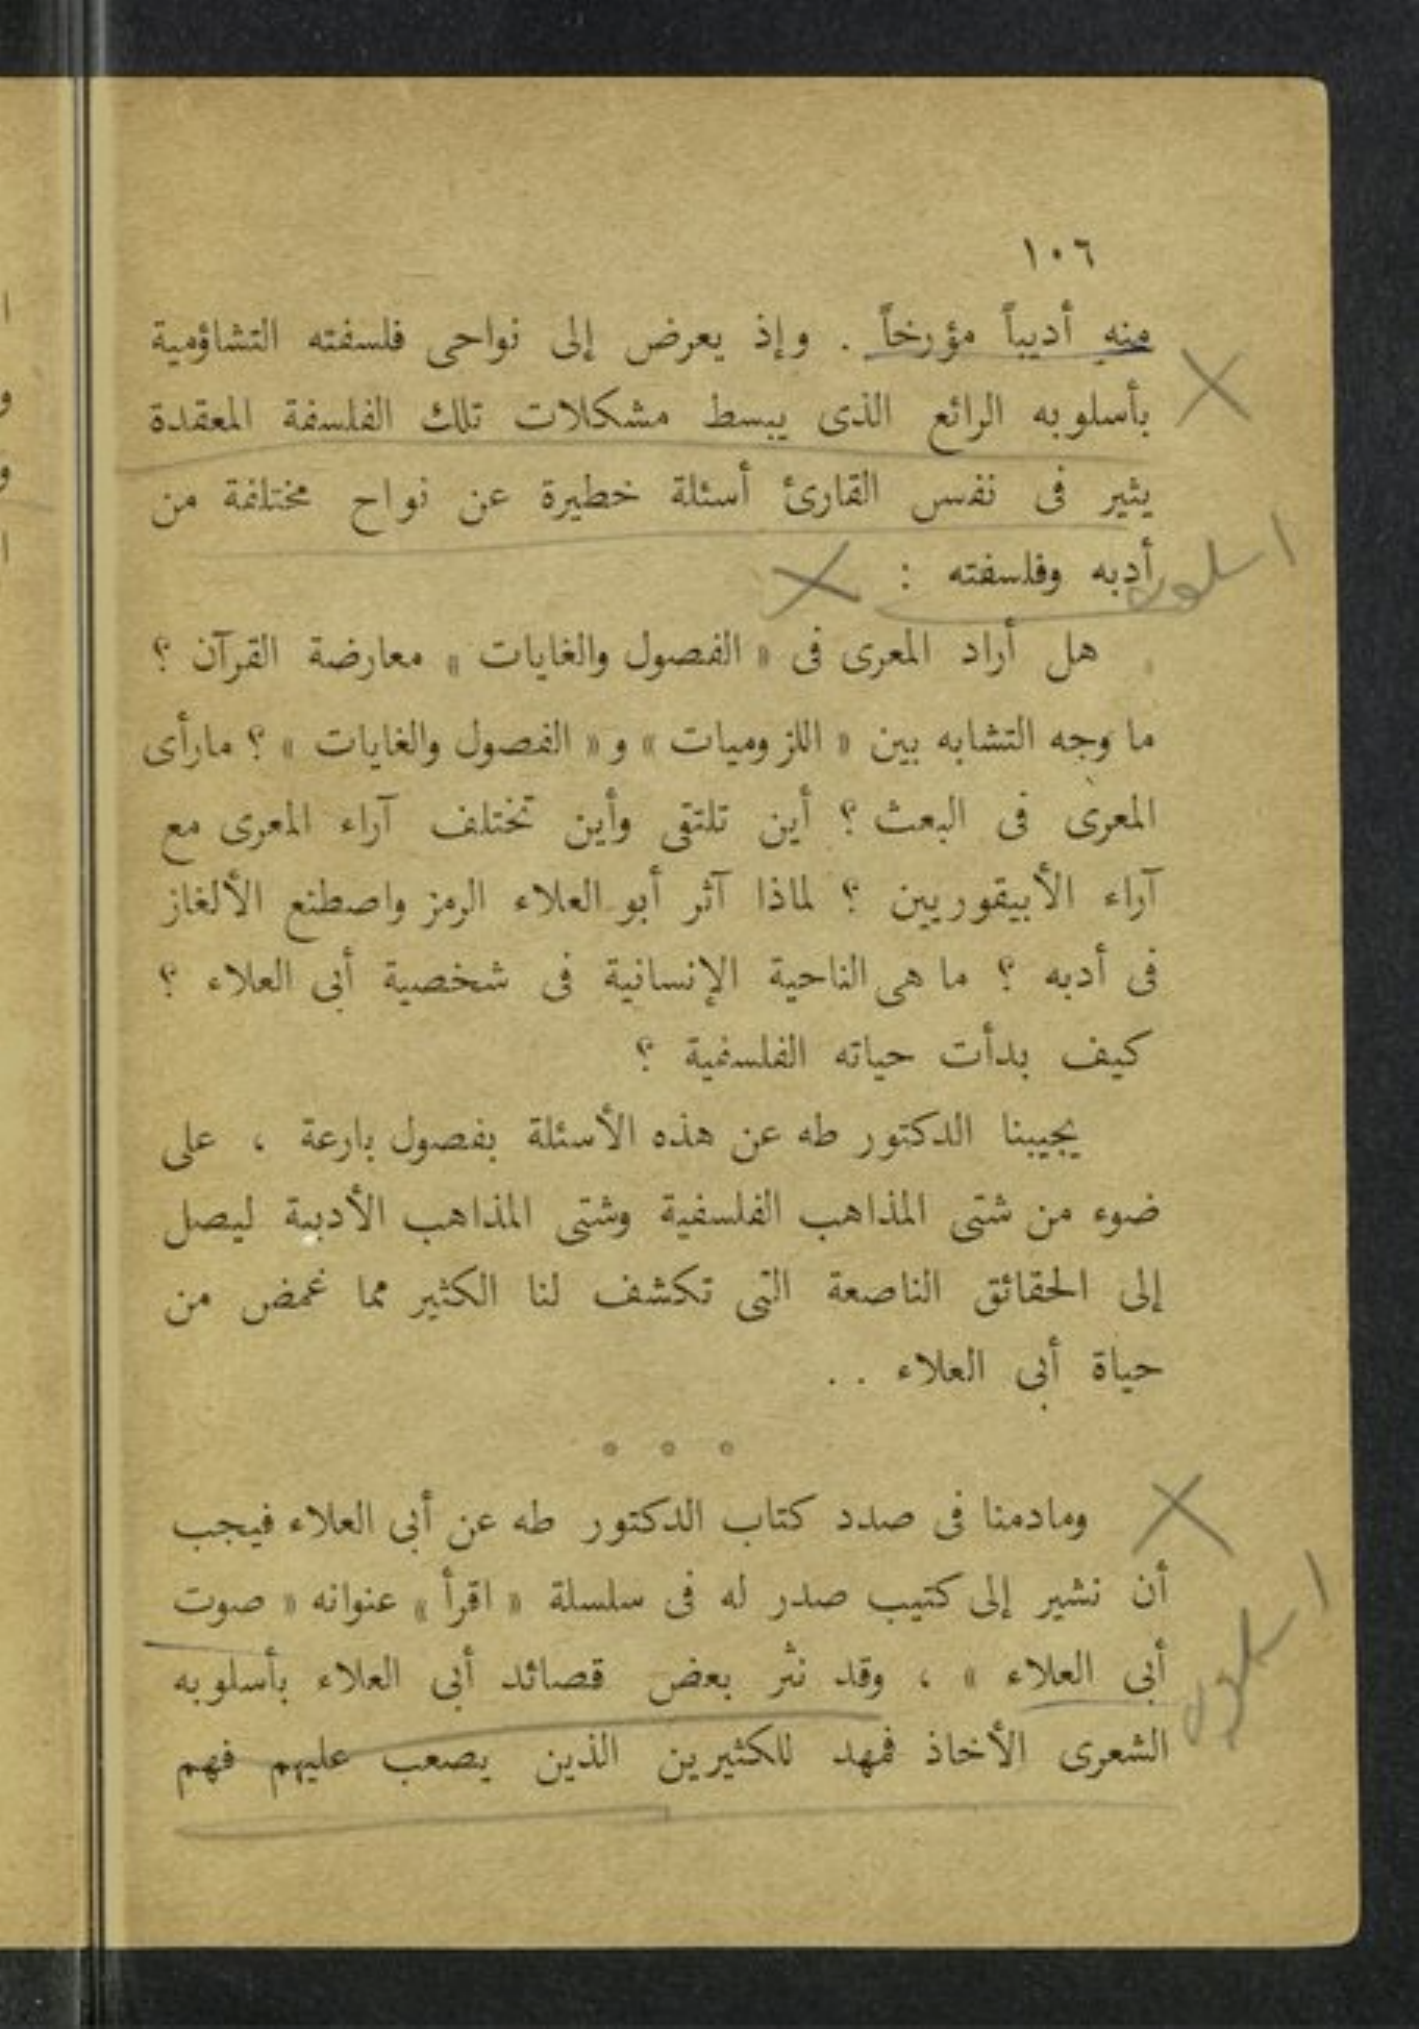 ١٠٦
منه أديباً مؤرخاً . وإذ يعرض إلى نواحى فلسفته التشاؤمية
بأسلوبه الرائع الذى يبسط مشكلات تلك الفلسفة المعقدة
يثير فى نفس القارئ أسئلة خطيرة عن نواح مختلفة من
أدبه وفلسفته :
اسلوب
هل أراد المعرى فى « الفصول والغايات » معارضة القرآن ؟
ما وجه التشابه بين « اللزوميات » و « الفصول والغايات » ؟ مارأى
المعرى فى البعث ؟ أين تلتقى وأين تختلف آراء المعرى مع
آراء الأبيقوريين ؟ لماذا آثر أبو العلاء الرمز واصطنع الألغاز
فى أدبه ؟ ما هى الناحية الإنسانية فى شخصية أبى العلاء ؟
كيف بدأت حياته الفلسفية ؟
يجيبنا الدكتور طه عن هذه الأسئلة بفصول بارعة ، على
ضوء من شتى المذاهب الفلسفية وشتى المذاهب الأدبية ليصل
إلى الحقائق الناصعة التى تكشف لنا الكثير مما غمض من
حياة أبى العلاء . .
* * *
ومادمنا فى صدد كتاب الدكتور طه عن أبى العلاء فيجب
أن نشير إلى كتيب صدر له فى سلسلة « اقرأ » عنوانه « صوت
أبى العلاء » ، وقد نثر بعض قصائد أبى العلاء بأسلوبه
اسلوب
الشعرى الأخاذ فمهد للكثيرين الذين يصعب عليهم فهم